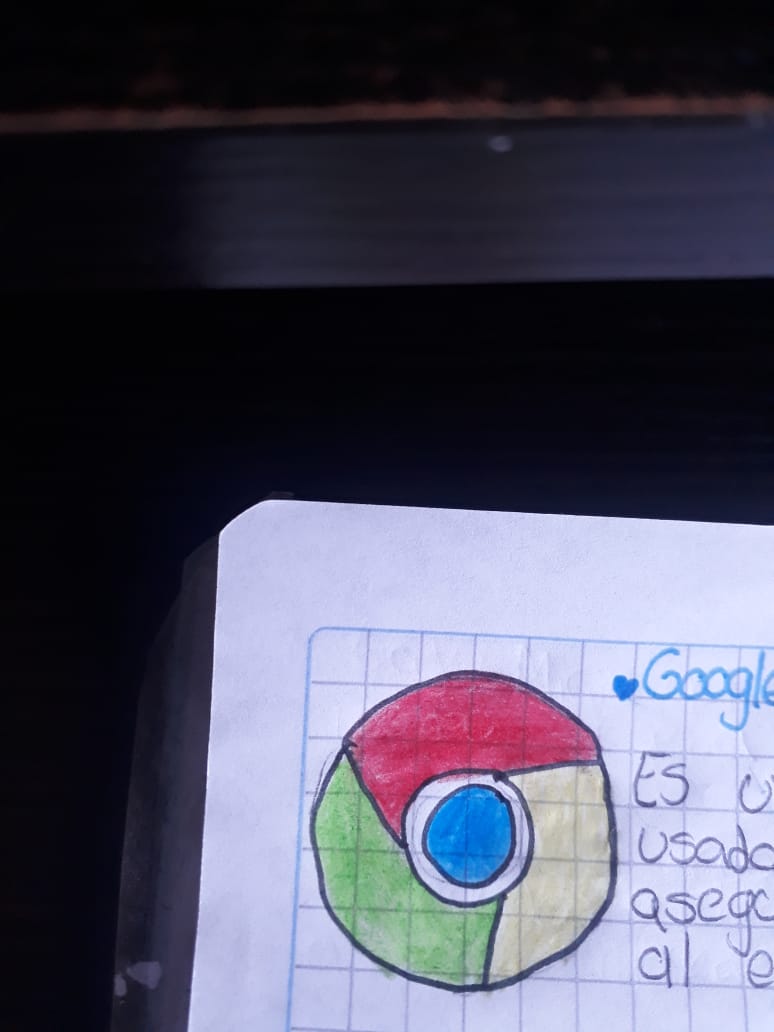 Google
Es u
usado
asegu
al e